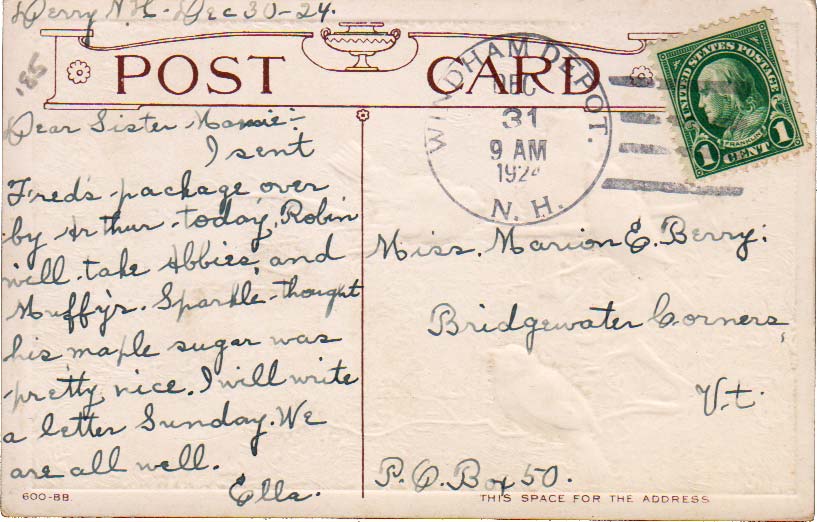 Derry N.H.-Dec 30-24.
'85
POST CARD
Dear Sister Mamie:-
I sent
Fred's package over
by Arthur today, Robin
will take Abbies, and
Muffy's. Sparkle thought
his maple sugar was
pretty nice. I will write
a letter Sunday. We
are all well.
Ella.
600-BB.
WINDHAM DEPOT.
DEC
31
9 AM
1924
N. H.
UNITED STATES POSTAGE
FRANKLIN
1 CENT 1
Miss. Marion E. Berry:
Bridgewater Corners,
Vt.
P.O. Box 50.
THIS SPACE FOR THE ADDRESS